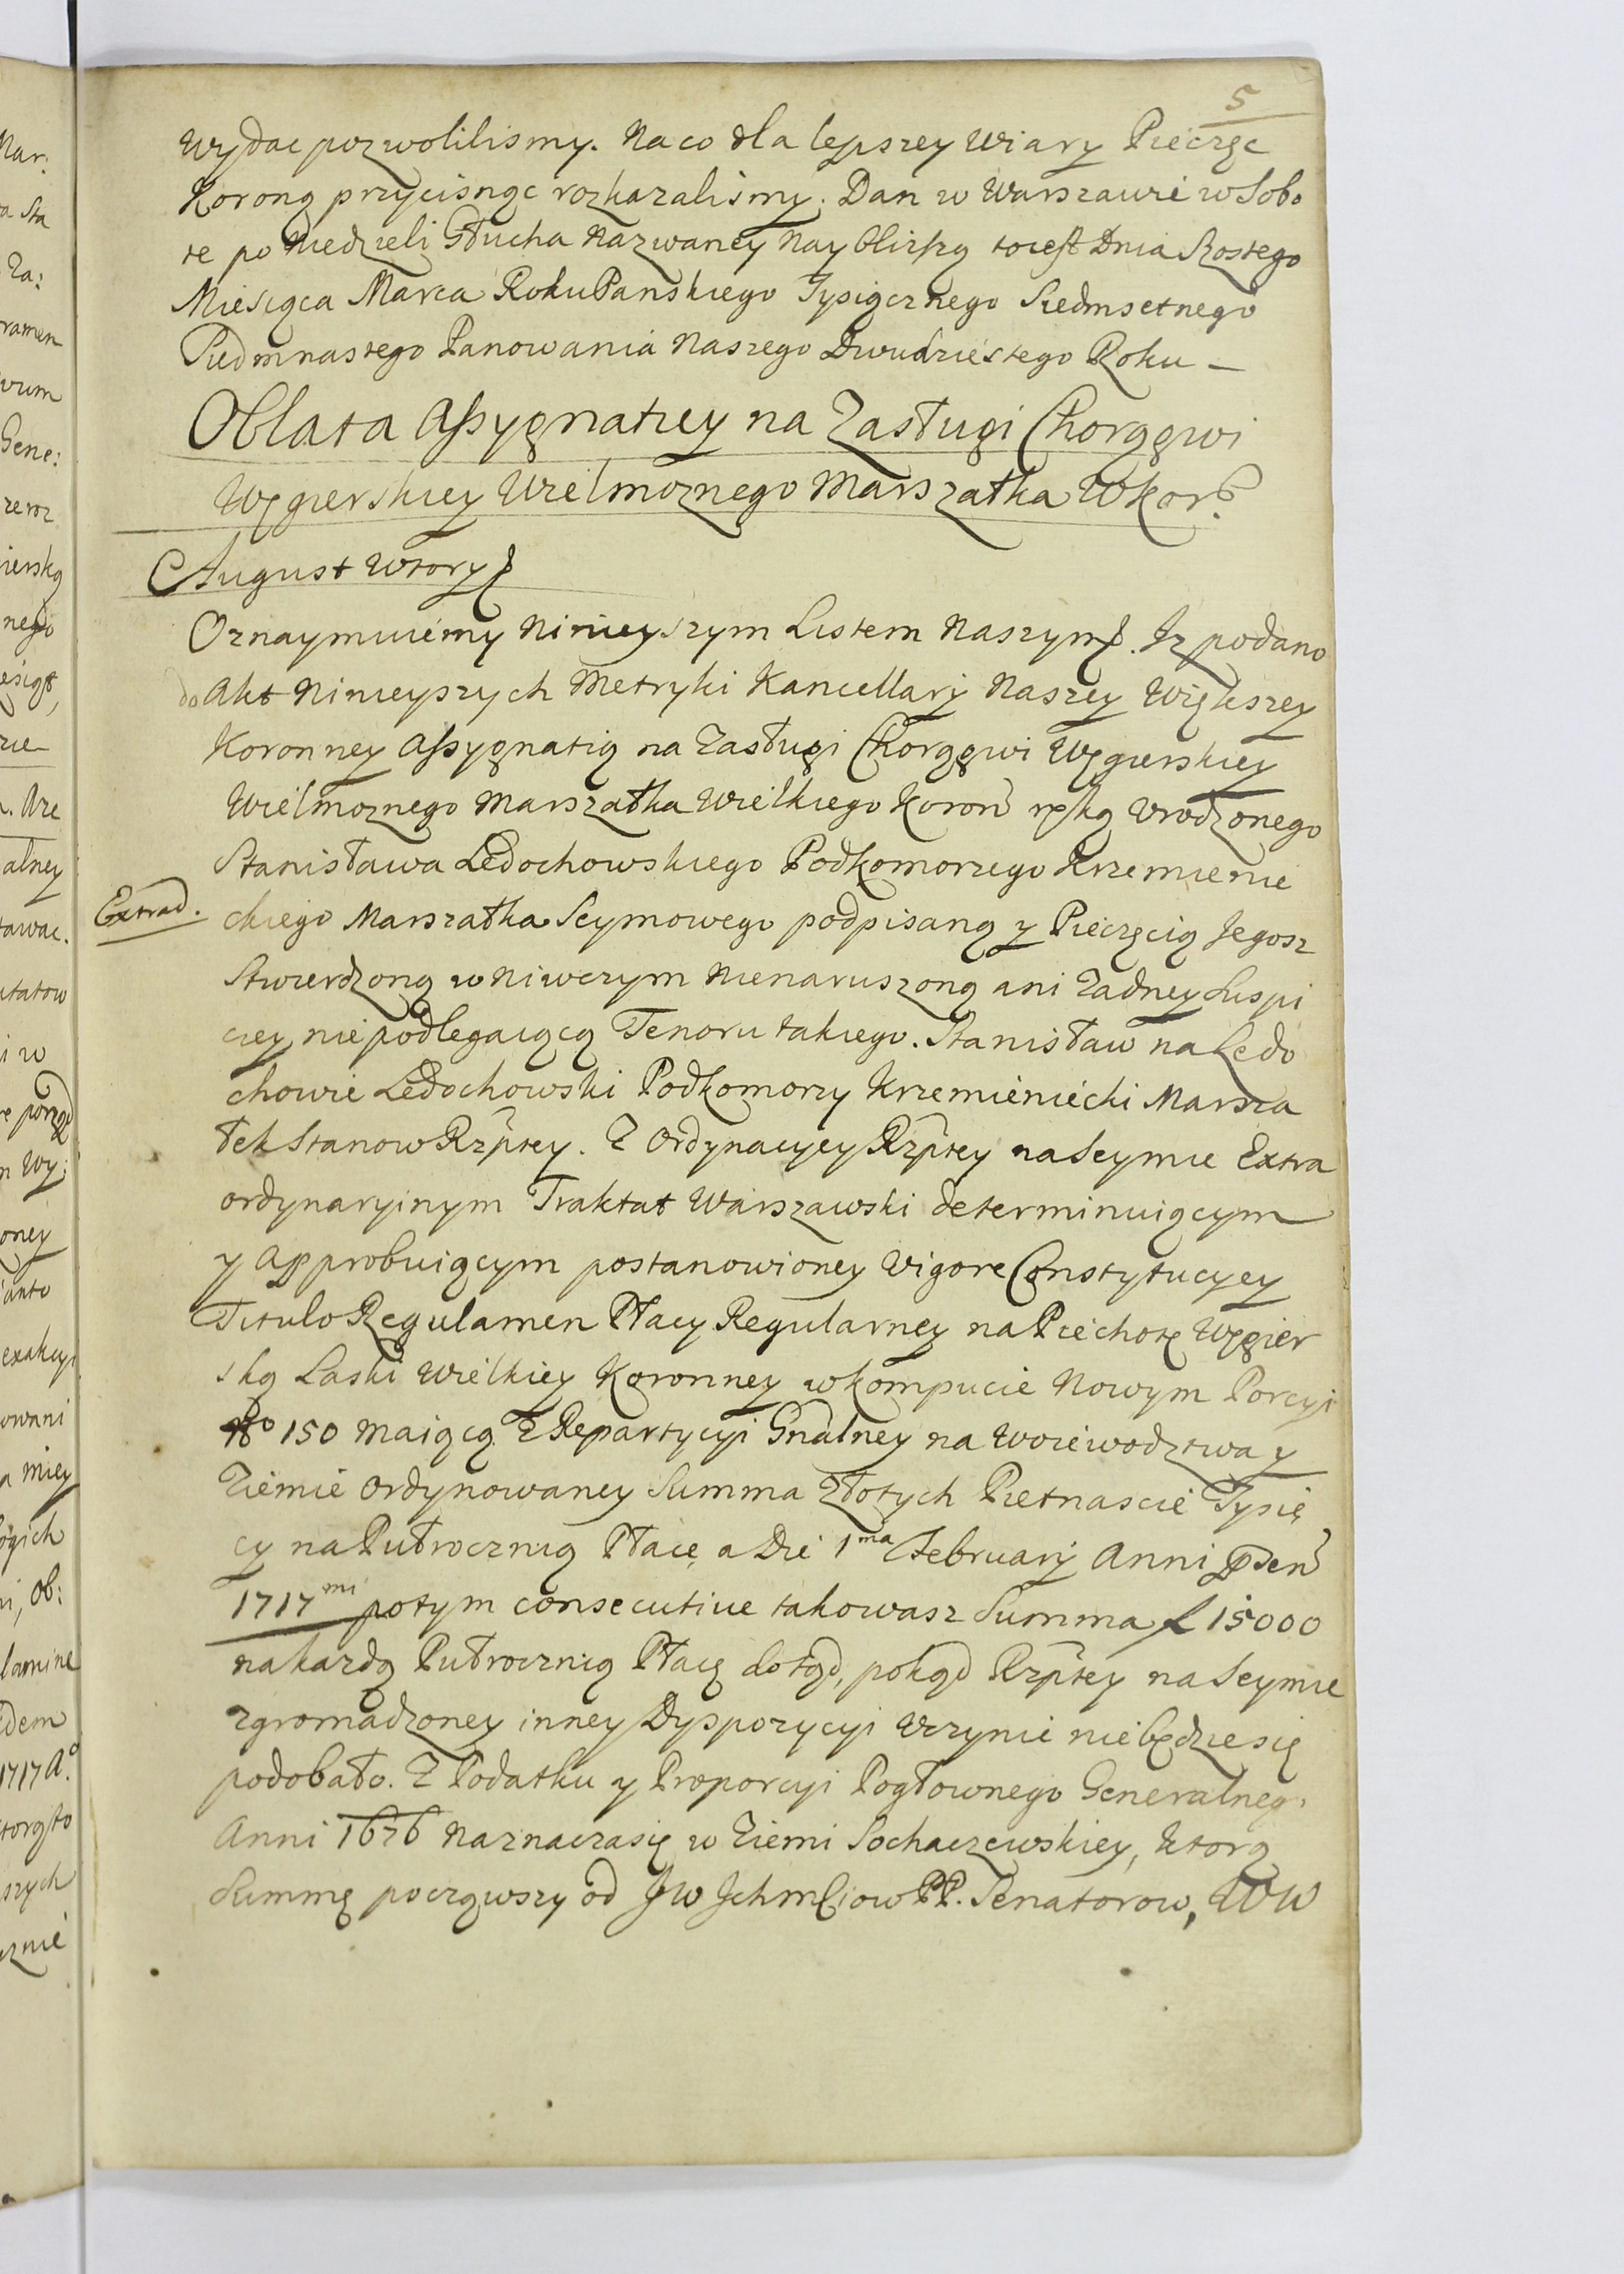 5
Wydac pozwolilismy. Na co dla lepszey Wiary Pieczęc
Koroną przycisnąc rozkazalismy. Dan w Warszawie w Sobo
te po Niedzieli Głucha Nazwaney Nay bliższą toiest Dnia Szostego
Miesiąca Marca Roku Panskiego Tysiącznego Siedmsetnego
Siedmnastego Panowania Naszego Dwudziestego Roku —
Oblata Assygnatiey na Zasługi Chorągwi
Węgierskiey Wielmoznego Marszałka W Kor:
August Wtory
Oznaymuiemy Ninieyszym Listem Naszym. Iz podano
do Akt Ninieyszych Metryki Kancellarij Naszey Większey
Koronney Assygnatią na Zasługi Chorągwi Węgierskiey
Wielmoznego Marszałka Wielkiego Koron ręką Urodzonego
Stanisława Ledochowskiego Podkomorzego Krzemienie
Extrad.
ckiego Marszałka Seymowego podpisaną y Pieczęcią Jegosz
Stwierdzoną w Niwczym Nienaruszoną ani Zadney Suspi
ciey niepodlegaiącą Tenoru takiego. Stanisław na Ledo
chowie Ledochowski Podkomorzy Krzemieniecki Marsza
łek Stanow Rzptey. Z Ordynacyey Rzptey na Seymie Extra
ordynaryinym Traktat Warszawski determinuiącym
y Approbuiącym postanowioney Vigore Constytucyey
Titulo Regulamen Płacy Regularney na Piechotę Węgier
ską Laski Wielkiey Koronney w kompucie Nowym Porcyi
Nro 150 Maiącą Z Repartycyi Gnalney na Woiewodztwa y
Ziemie Ordynowaney Summa Złotych Pietnascie Tysię
cy na Pułroczną Płacę a Die 1ma February Anni Psen
1717mi potym consecutive takowasz Summa f 15000
na kazdą Pułroczną Płacę dotąd, pokąd Rzptey na Seymie
zgromadzoney inney Dyspozycyi Uczynic niebędziesię
podobało. Z Podatku y Proporcyi Pogłownego Generalneg.
Anni 1676 Naznaczasię w Ziemi Sochaczewskiey, Ktorą
Summę począwszy od JW Ichmściow PP. Senatorow, WW